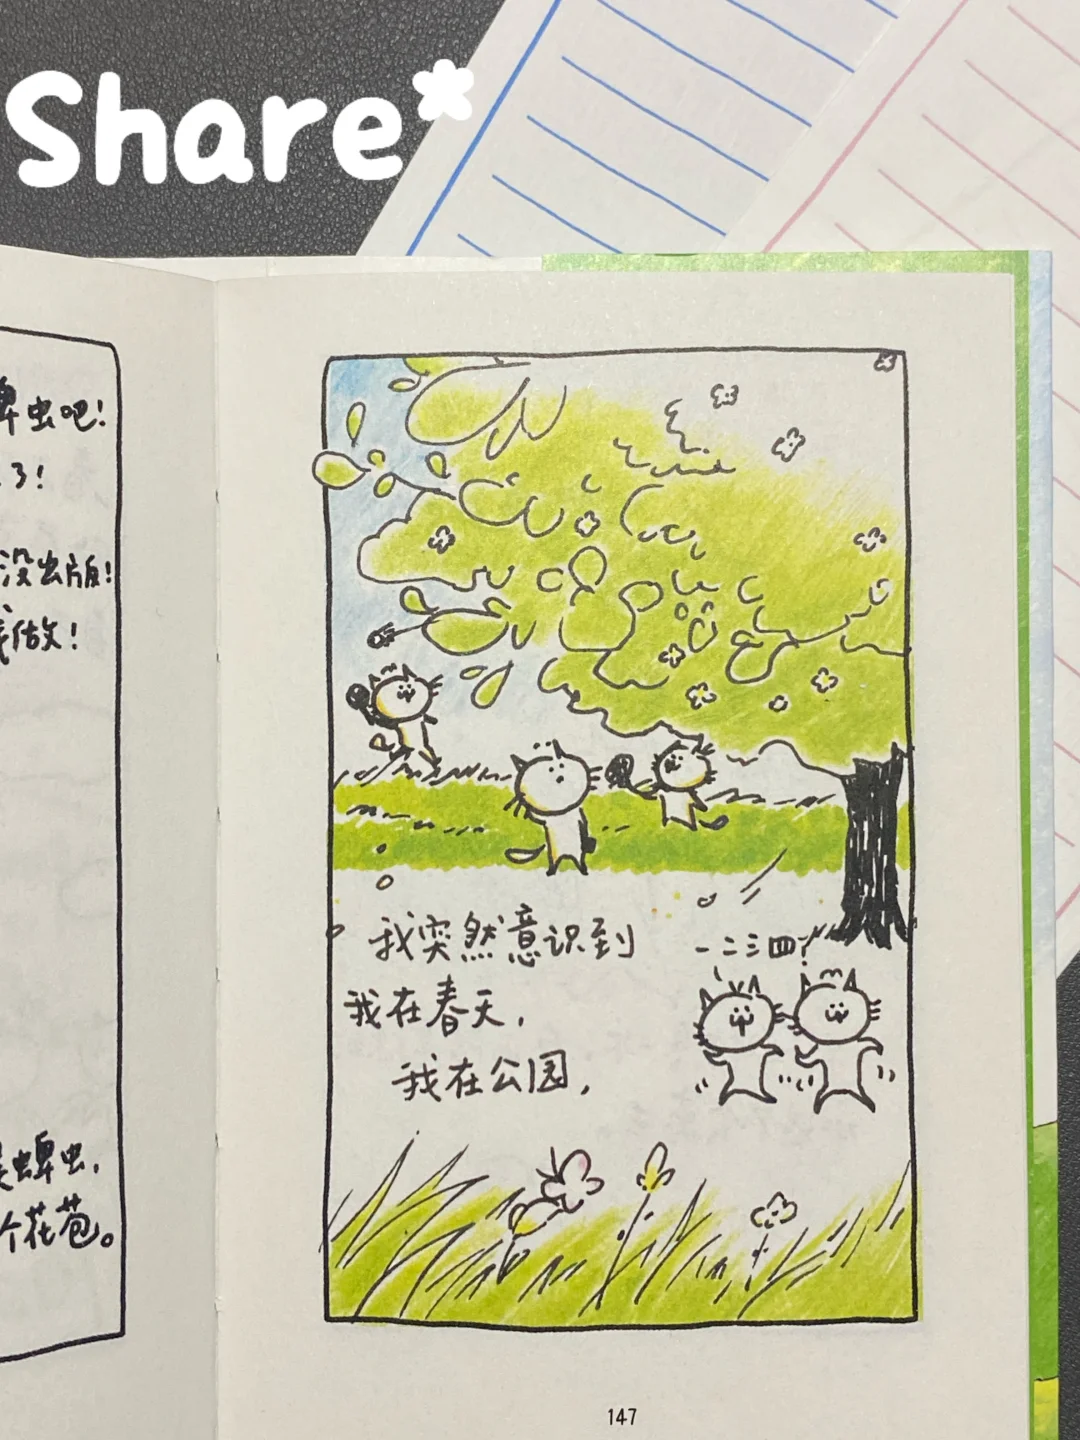 Share*
蜱虫吧!
了!
没出版!
我做!
是蜱虫,
个花苞。
我突然意识到
我在春天,
我在公园,
一二三四!
147